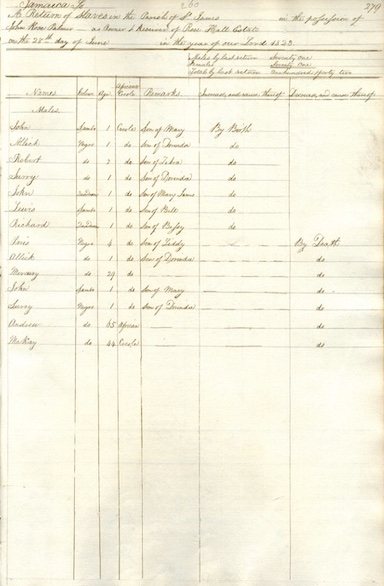 Jamaica Ss 260 279
A Return of Slaves in the Parish of St. James in the possession of
John Rose Palmer as Owner & Receiver of Rose Hall Estate
on the 28th day of June in the year of our Lord
Males by last return Seventy one
Females Seventy One
Total by last return One hundred & forty two
Names Colour Age African or Creole Remarks Increase, and cause thereof Decrease, and cause thereof
Males
John Sambo 1 Creole Son of Mary By Birth
Alleck Negro 1 do Son of Dorinda do
Robert do 2 do Son of Zebra do
Surry do 1 do Son of Dorinda do
John Quadroon 1 do Son of Mary James do
Lewis Sambo 1 do Son of Bell do
Richard Quadroon 1 do Son of Bessy do
Paris Negro 4 do Son of Teddy By Death
Alleck do 1 do Son of Dorinda do
Mercury do 29 do do
John Sambo 1 do Son of Mary do
Surry Negro 1 do Son of Dorinda do
Andrew do 65 African do
McKay do 44 Creole do